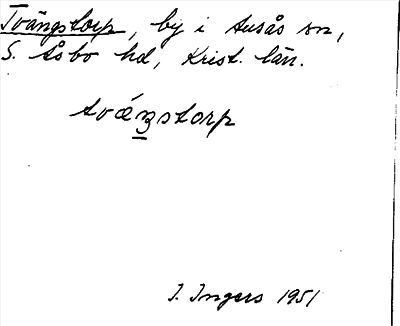 Tvängstorp, by i Ausås sn,
S. Åsbo hd, Krist. län.
tvǽŋstorp
I. Ingers 1951